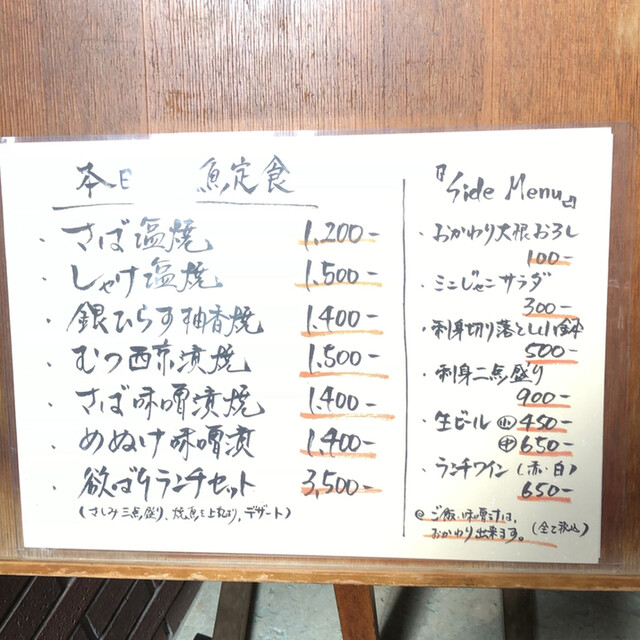 本日 魚定食
・さば塩焼 1,200-
・しゃけ塩焼 1,500-
・銀ひらす柚香焼 1,400-
・むつ西京漬焼 1,500-
・さば味噌漬焼 1,400-
・めぬけ味噌漬 1,400-
・欲ばりランチセット 3,500-
(さしみ三点盛り、焼魚と上天ぷら、デザート)
『Side Menu』
・おかわり大根おろし
100-
・ミニじゃこサラダ
300-
・刺身切り落とし小鉢
500-
・刺身二点盛り
900-
・生ビール ㊙小 450-
㊥ 650-
・ランチワイン(赤・白)
650-
◎ご飯、味噌汁は、
おかわり出来ます。(全て税込)